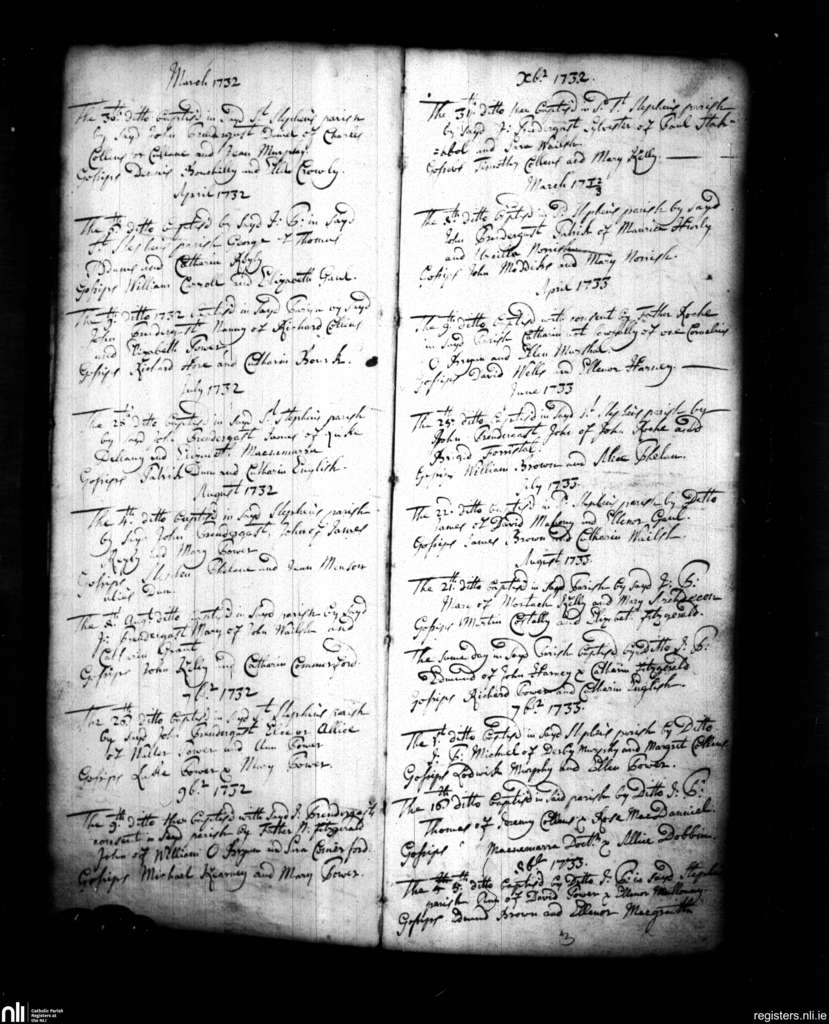 March 1732
The 30th ditto baptised in Sayd St Stephens parish
by Sayd John Prendergast Daniel of Charles
Collins or Cullane and Jean Murphy
Gosips Dennis and Ellen Crowly.
April 1732
The ditto baptised by Sayd J: P: in Sayd
St Stephens parish George of Thomas
Addams and Catharin
Gosips William Carroll and Elizabeth Gaul.
The 9th ditto 1732 baptised in Sayd Parish by Sayd
John Prendergast Nanny of Richard Collins
and Elizabeth Power
Gosips Richard Hore and Catharin Bourk.
July 1732
The 28th ditto baptised in Sayd St Stephens parish
by Sayd John Prendergast James of Luke
Dullany and Macnemara
Gosips Patrick Dun and Catharin English.
August 1732
The 4th ditto baptised in Sayd Stephens parish
by Sayd John Prendergast, John of James
and Mary Power
Gosips Stephen and Jean
alias Dun.
The 8th Augt ditto baptised in Sayd parish by Sayd
J: Prendergast Mary of John Walsh and
Catharin Grant
Gosips John Kelly and Catharin Commerford.
7br 1732
The 26th ditto baptised in Sayd St Stephens parish
by Sayd John Prendergast or Allice
of Walter Power and Ann Power
Gosips Luke Power & Mary Power.
9br 1732
The 9th ditto baptised with Sayd J: Prendergasts
consent in Sayd parish by Father Fitzgerald
John of William O Bryan and Sara Comerford.
Gosips Michael Kearney and Mary Power.
Xbr 1732.
The 31th ditto baptised in Sd St Stephens parish
by Sayd J: Prendergast Sylvester of Paul Stak=
=abol and Walsh.
Gosips Timothy Collins and Mary Kelly.
March 1732/3
The 8th ditto baptised in Sd Stephens parish by Sayd
John Prendergast Patrick of Maurice
and Norrish
Gosips John Maddiks and Mary Norrish.
April 1733
The 9th ditto baptised with consent by Father Roche
in Sayd Parish Catharin of one Cornelius
O Bryan and Ellen
Gosips David Wells and Ellenor Harney.
June 1733
The 24th ditto baptised in Sayd St Stephens parish by
John Prendergast John of John Roche and
Brigid Forristal.
Gosips William Brown and Alice Phelan.
July 1733.
The 22th ditto baptised in St Stephens parish by Ditto
James of David Mahony and Ellenor Gaul.
Gosips James Brown and Catharin Walsh.
August 1733.
The 21th ditto baptised in Sayd Parish by Sayd J: P:
Mary of Mortach Kelly and Mary
Gosips Martin Costally and Elizabt. Fitzgerald.
The same day in Sayd Parish baptised by ditto J: P:
Edmund of John Harney & Catharin Fitzgerald
Gosips Richard Power and Catharin English.
7br 1733.
The 1st ditto baptised in Sayd Stephens parish by Ditto
J: P: Michael of Derby Murphy and Margret Collins
Gosips Lodwick Murphy and Ellen Power.
The 16th ditto baptised in Said parish by Ditto J: P:
Thomas of Jeremy Collins & Rose MacDanniel
Gosips Macnemarra Doctr & Allice Dobbin.
8br 1733.
The 5th ditto baptised by Ditto J: P: in Sayd Stephens
parish of David Power & Ellenor
Gosips Edmund Brown and Ellenor Magrath
nli
Catholic Parish
Registers at
the NLI
registers.nli.ie